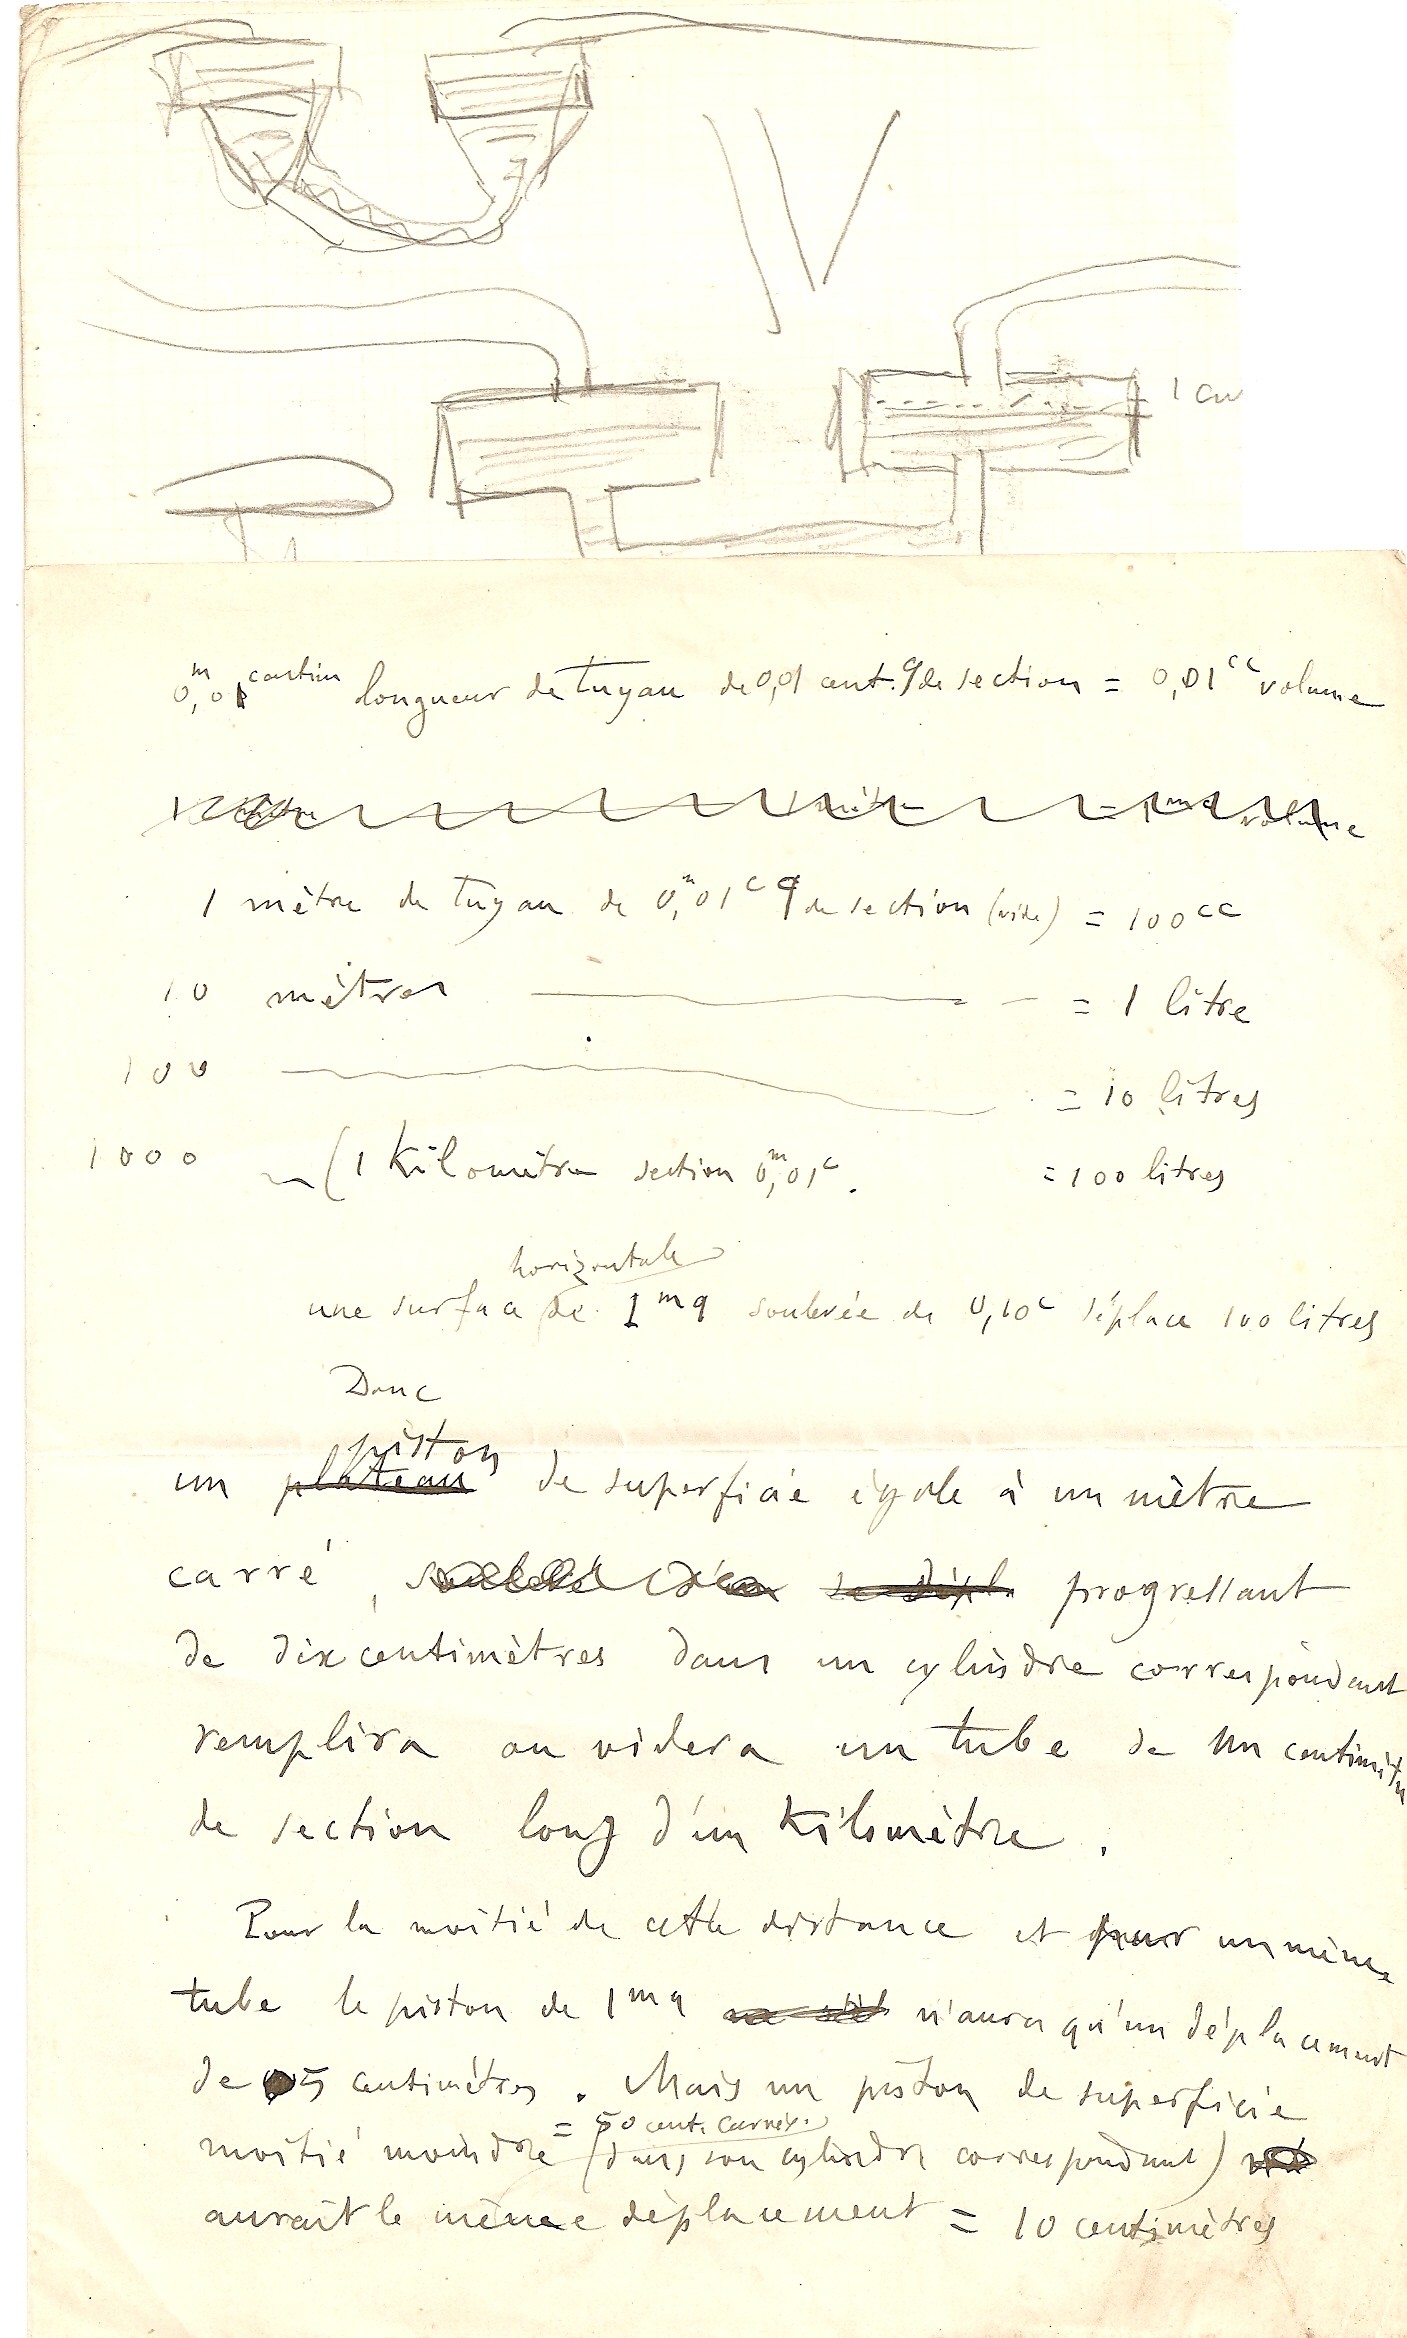 1 cm
0,01 m centim longueur de tuyau de 0,01 cent. q de section = 0,01 cc volume
1 mètre = 1 mq volume
1 mètre de tuyau de 0,01 m c q de section (vide) = 100 cc
10 mètres — = 1 litre
100 — = 10 litres
1000 — (1 Kilomètre section 0,01 m c. = 100 litres
horizontale
une surface de 1 mq soulevée de 0,10 c déplace 100 litres
Donc
piston
un plateau de superficie égale à un mètre
carré, soulevé progressant
de dix centimètres dans un cylindre correspondant
remplira ou videra un tube de un centimètre
de section long d'un Kilomètre.
Pour la moitié de cette distance et pour un même
tube le piston de 1 mq n'aura qu'un déplacement
de 5 centimètres. Mais un piston de superficie
= 50 cent. carrés.
moitié moindre (dans son cylindre correspondant)
aurait le même déplacement = 10 centimètres